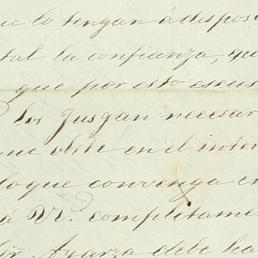 ue lo tengan á dispos
tal la confianza, qu
que por esto escus
los jusgan necesar
me obste en el inter
lo que convenga en
á VV. completame
or Ayarza debe ha